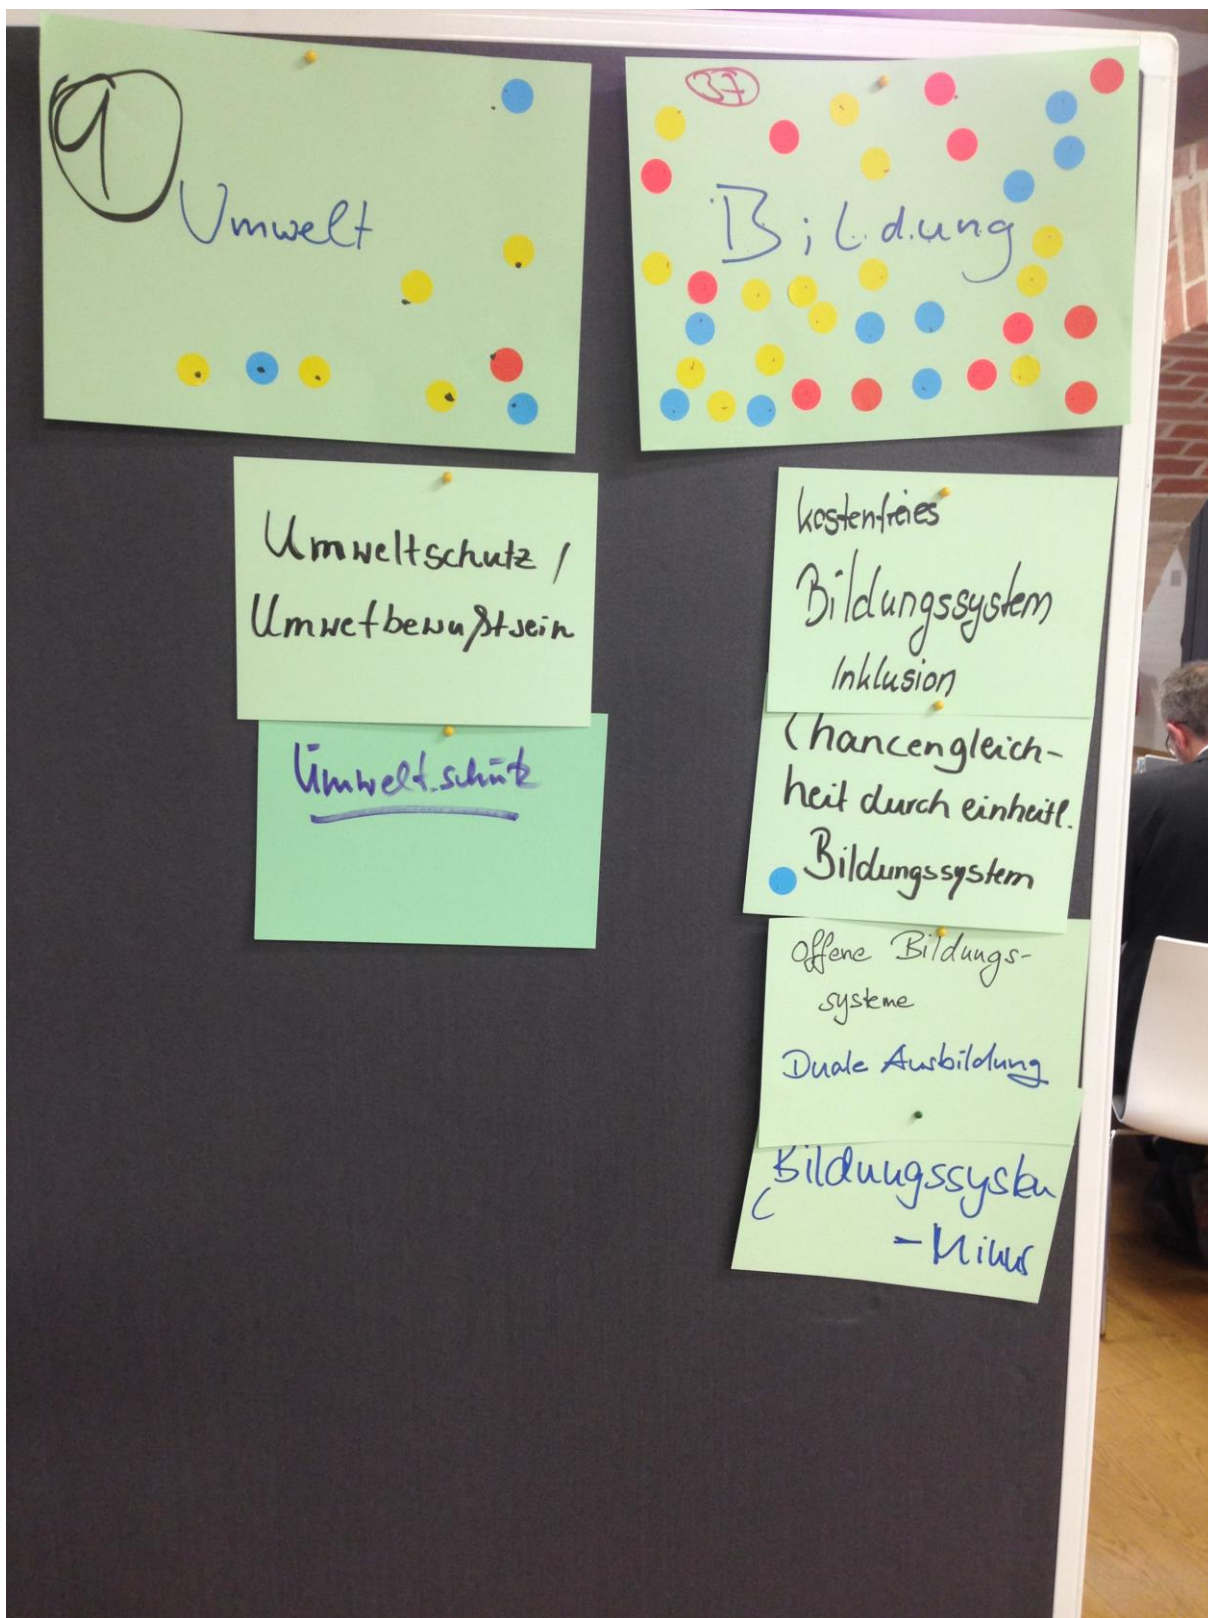 9
Umwelt
Umweltschutz /
Umwetbewußtsein
Umweltschutz
37
Bildung
kostenfreies
Bildungssystem
Inklusion
Chancengleich-
heit durch einheitl.
Bildungssystem
Offene Bildungs-
systeme
Duale Ausbildung
Bildungssystem
- Minus